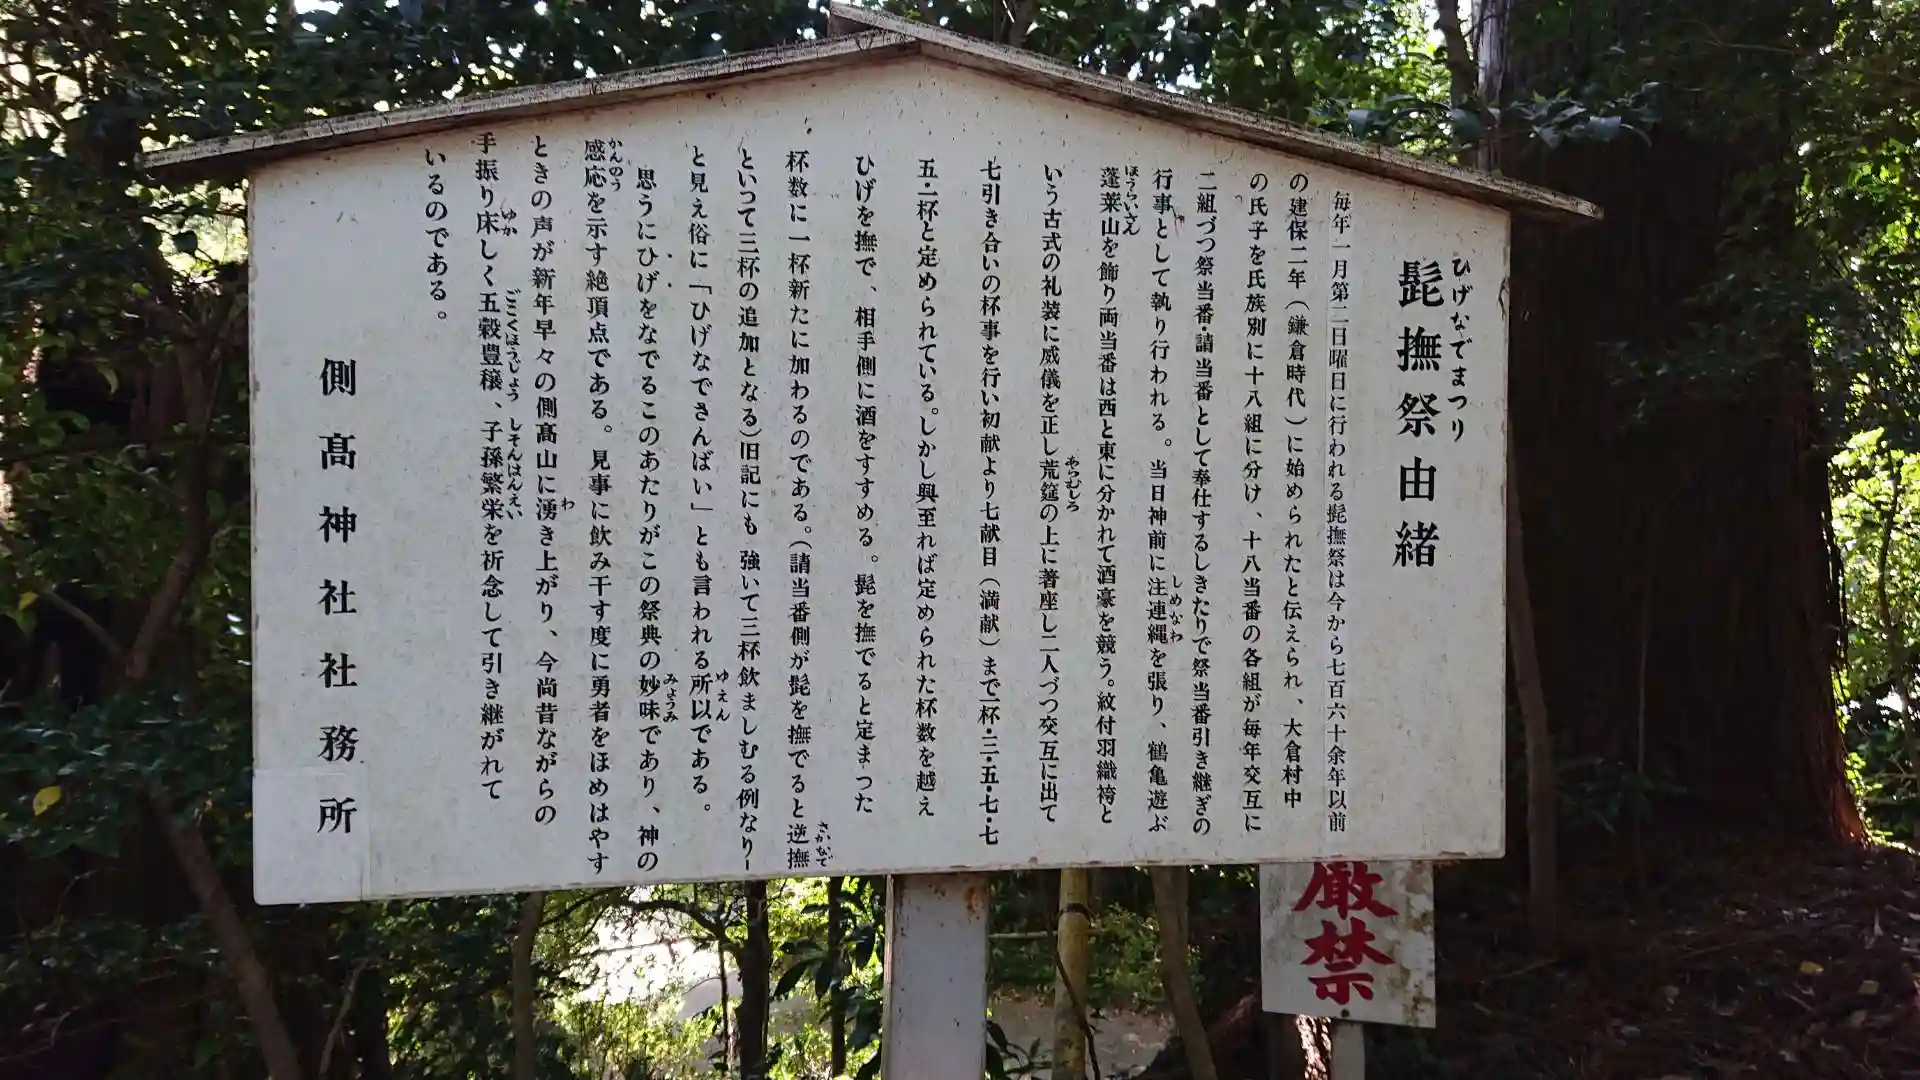 髭撫祭由緒
ひげなでまつり
毎年一月第二日曜日に行われる髭撫祭は今から七百六十余年以前
の建保二年（鎌倉時代）に始められたと伝えられ、大倉村中
の氏子を氏族別に十八組に分け、十八当番の各組が毎年交互に
二組づつ祭当番・請当番として奉仕するしきたりで祭当番引き継ぎの
行事として執り行われる。当日神前に注連縄を張り、鶴亀遊ぶ
しめなわ
蓬莱山を飾り両当番は西と東に分かれて酒豪を競う。紋付羽織袴と
ほうらいさん
いう古式の礼装に威儀を正し荒筵の上に著座し二人づつ交互に出て
あらむしろ
七引き合いの杯事を行い初献より七献目（満献）まで二杯・三・五・七・七
五・二杯と定められている。しかし興至れば定められた杯数を越え
ひげを撫で、相手側に酒をすすめる。髭を撫でると定まった
杯数に一杯新たに加わるのである。（請当番側が髭を撫でると逆撫
さかなで
といつて三杯の追加となる）旧記にも 強いて三杯飲ましむる例なり―
と見え俗に「ひげなでさんばい」とも言われる所以である。
ゆえん
思うにひげをなでるこのあたりがこの祭典の妙味であり、神の
みょうみ
感応を示す絶頂点である。見事に飲み干す度に勇者をほめはやす
かんのう
ときの声が新年早々の側髙山に湧き上がり、今尚昔ながらの
わ
手振り床しく五穀豊穣、子孫繁栄を祈念して引き継がれて
ゆか ごこくほうじょう しそんはんえい
いるのである。
側髙神社社務所
厳禁